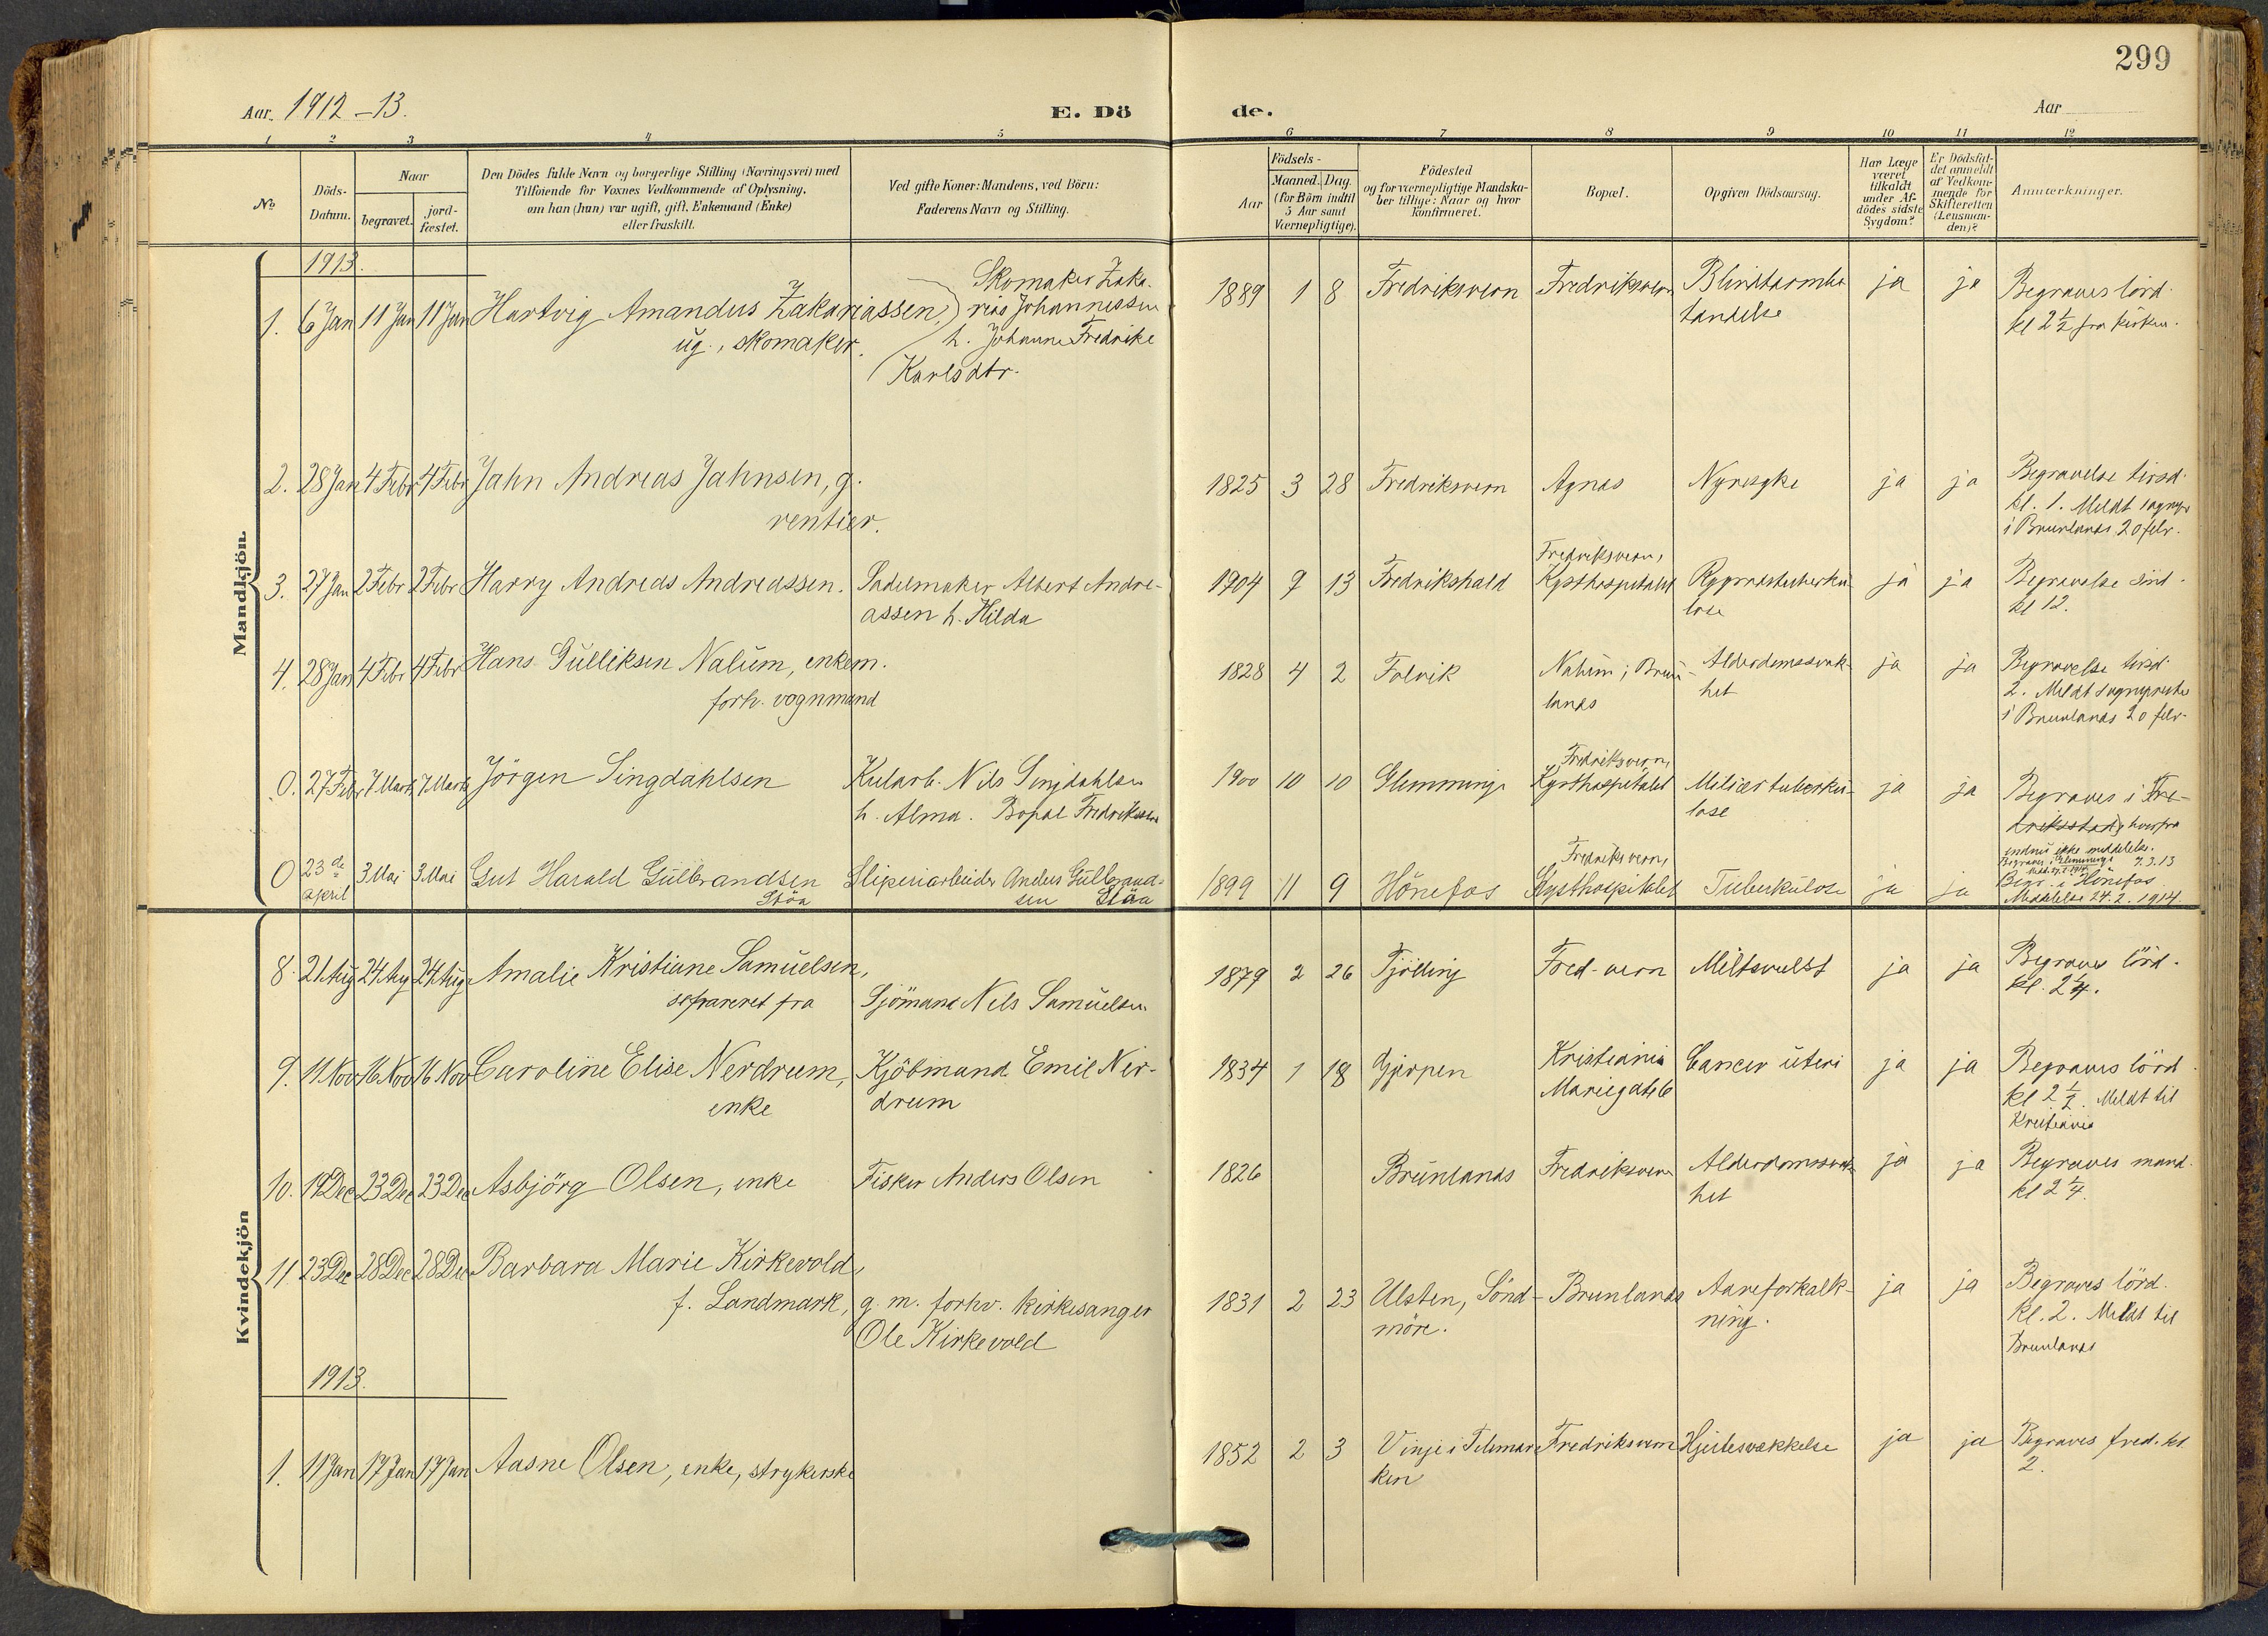 299
Aar. 1912–13.
E. Dö de.
Aar
1 2 3 4 5 6 7 8 9 10 11 12
No
Döds-
Datum.
Naar
begravet.
jord-
fæstet.
Den Dödes fulde Navn og borgerlige Stilling (Næringsvei) med
Tilföiende for Voxnes Vedkommende af Oplysning,
om han (hun) var ugift, gift, Enkemand (Enke)
eller fraskilt.
Ved gifte Koner: Mandens, ved Börn:
Faderens Navn og Stilling.
Födsels-
Aar
Maaned. Dag.
(for Börn indtil
5 Aar samt
Værnepligtige).
Födested
og for værnepligtige Mandska-
ber tillige: Naar og hvor
konfirmeret.
Bopæl.
Opgiven Dödsaarsag.
Har Læge
været
tilkaldt
under Af-
dödes sidste
Sygdom?
Er Dödsfal-
det anmeldt
af Vedkom-
mende for
Skifteretten
(Lensman-
den)?
Anmærkninger.
Mandkjön.
1913.
1. 6 Jan 11 Jan 11 Jan Hartvig Amandus Zakariassen,
ug., skomaker.
Skomaker Zaka-
rias Johannessen
h. Johanne Fredrike
Karlsdtr.
1889 1 8 Fredriksvern Fredriksvern Blindtarmbe
tændelse
ja ja Begraves lörd.
kl 2 1/2 fra kirken.
2. 28 Jan 4 Febr 4 Febr Jahn Andreas Jahnsen, g.
rentier.
1825 3 28 Fredriksvern Agnes Nyresyke ja ja Begravelse tirsd.
kl. 1. Meldt sognepr
i Brunlanes 20 febr.
3. 27 Jan 2 Febr 2 Febr Harry Andreas Andreassen. Sadelmaker Albert Andre-
assen h. Hilda
1904 9 13 Fredrikshald Fredriksvern,
Kysthospitalet Rygradstuberku
lose
ja ja Begravelse sönd.
kl 12.
4. 28 Jan 4 Febr 4 Febr Hans Gulliksen Nalum, enkem.
forh. vognmand
1828 4 2 Folvik Nalum i Brun-
lanes
Alderdomssvak-
het
ja ja Begravelse tirsd.
2. Meldt sogneprest
i Brunlanes 20 febr.
0. 27 Febr 7 Marts 7 Marts Jörgen Singdahlsen Kularb. Nils Singdahlsen
h. Alma. Bopæl Fredriksstad
1900 10 10 Glemminge Fredriksvern,
Kysthospitalet Miliærtuberku-
lose
ja ja Begraves i Fre-
driksstad, hvorfra
endnu ikke meddelelse.
Begravet i Glemminge 7.3.13
0 23de
april 3 Mai 3 Mai Gut Harald Gulbrandsen
Stöa
Sliperiarbeider Anders Gulbrand-
sen Stöa
1899 11 9 Hönefos Fredriksvern,
Kysthospitalet Tuberkulose ja ja Begr. i Hönefos
Meddelelse 24.2.1914.
Kvindekjön
8. 21 Aug 24 Aug 24 Aug Amalie Kristiane Samuelsen,
separeret fra Sjömand Nils Samuelsen
1879 2 26 Tjölling Fred-vern Miltsvulst ja ja Begraves lörd.
kl. 2 1/4.
9. 11 Nov 16 Nov 16 Nov Caroline Elise Nerdrum,
enke
Kjöbmand Emil Ner-
drum
1834 1 18 Gjerpen Kristiania
Mariegate 6
Cancer uteri ja ja Begraves lörd
kl 2 1/2. Meldt til
Kristiania
10. 19 Dec 23 Dec 23 Dec Asbjörg Olsen, enke Fisker Anders Olsen
1826 Brunlanes Fredriksvern Alderdomssvak
het
ja ja Begraves mand.
kl 2 1/4.
11 23 Dec 28 Dec 28 Dec Barbara Marie Kirkevold,
f. Landmark, g. m. forhv. kirkesanger
Ole Kirkevold
1831 2 23 Ulsten, Sönd-
möre.
Brunlanes Aareforkalk-
ning.
ja ja Begraves lörd.
kl. 2. Meldt til
Brunlanes
1913.
1. 11 Jan 17 Jan 17 Jan Aasne Olsen, enke, strykerske
1852 2 3 Vinje i Telemar
ken
Fredriksvern Hjertesvekkelse ja ja Begraves fred. kl
2.